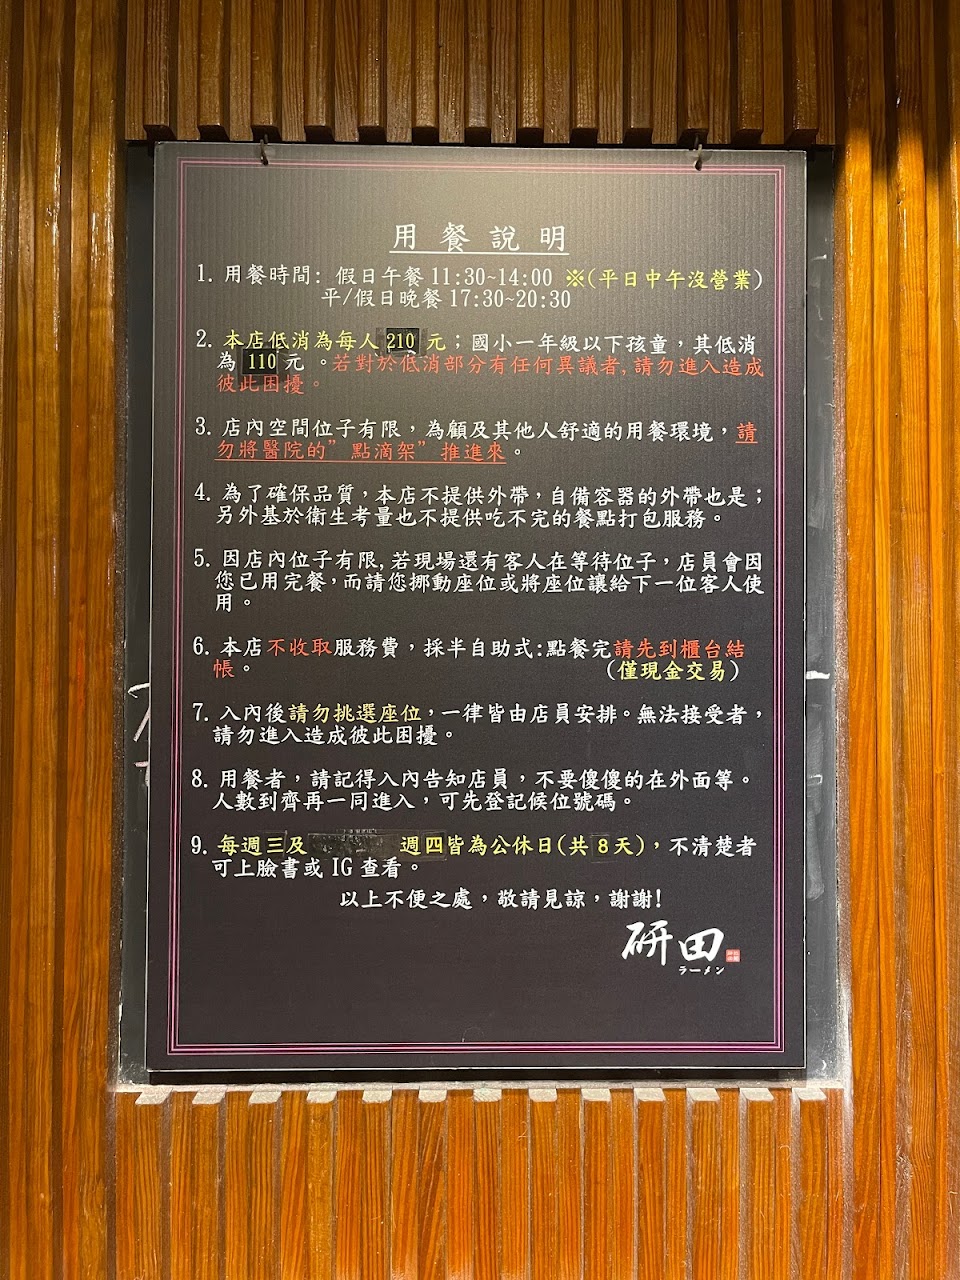 用餐說明
1. 用餐時間: 假日午餐 11:30~14:00 ※(平日中午沒營業)
平/假日晚餐 17:30~20:30
2. 本店低消為每人 210 元；國小一年級以下孩童，其低消
為 110 元 。若對於低消部分有任何異議者,請勿進入造成
彼此困擾。
3. 店內空間位子有限，為顧及其他人舒適的用餐環境，請
勿將醫院的”點滴架”推進來。
4. 為了確保品質，本店不提供外帶，自備容器的外帶也是；
另外基於衛生考量也不提供吃不完的餐點打包服務。
5. 因店內位子有限,若現場還有客人在等待位子，店員會因
您已用完餐，而請您挪動座位或將座位讓給下一位客人使
用。
6. 本店不收取服務費，採半自助式:點餐完請先到櫃台結
帳。 (僅現金交易)
7. 入內後請勿挑選座位，一律皆由店員安排。無法接受者，
請勿進入造成彼此困擾。
8. 用餐者，請記得入內告知店員，不要傻傻的在外面等。
人數到齊再一同進入，可先登記候位號碼。
9. 每週三及 週四皆為公休日(共 8 天)，不清楚者
可上臉書或 IG 查看。
以上不便之處，敬請見諒，謝謝!
研田
ラーメン